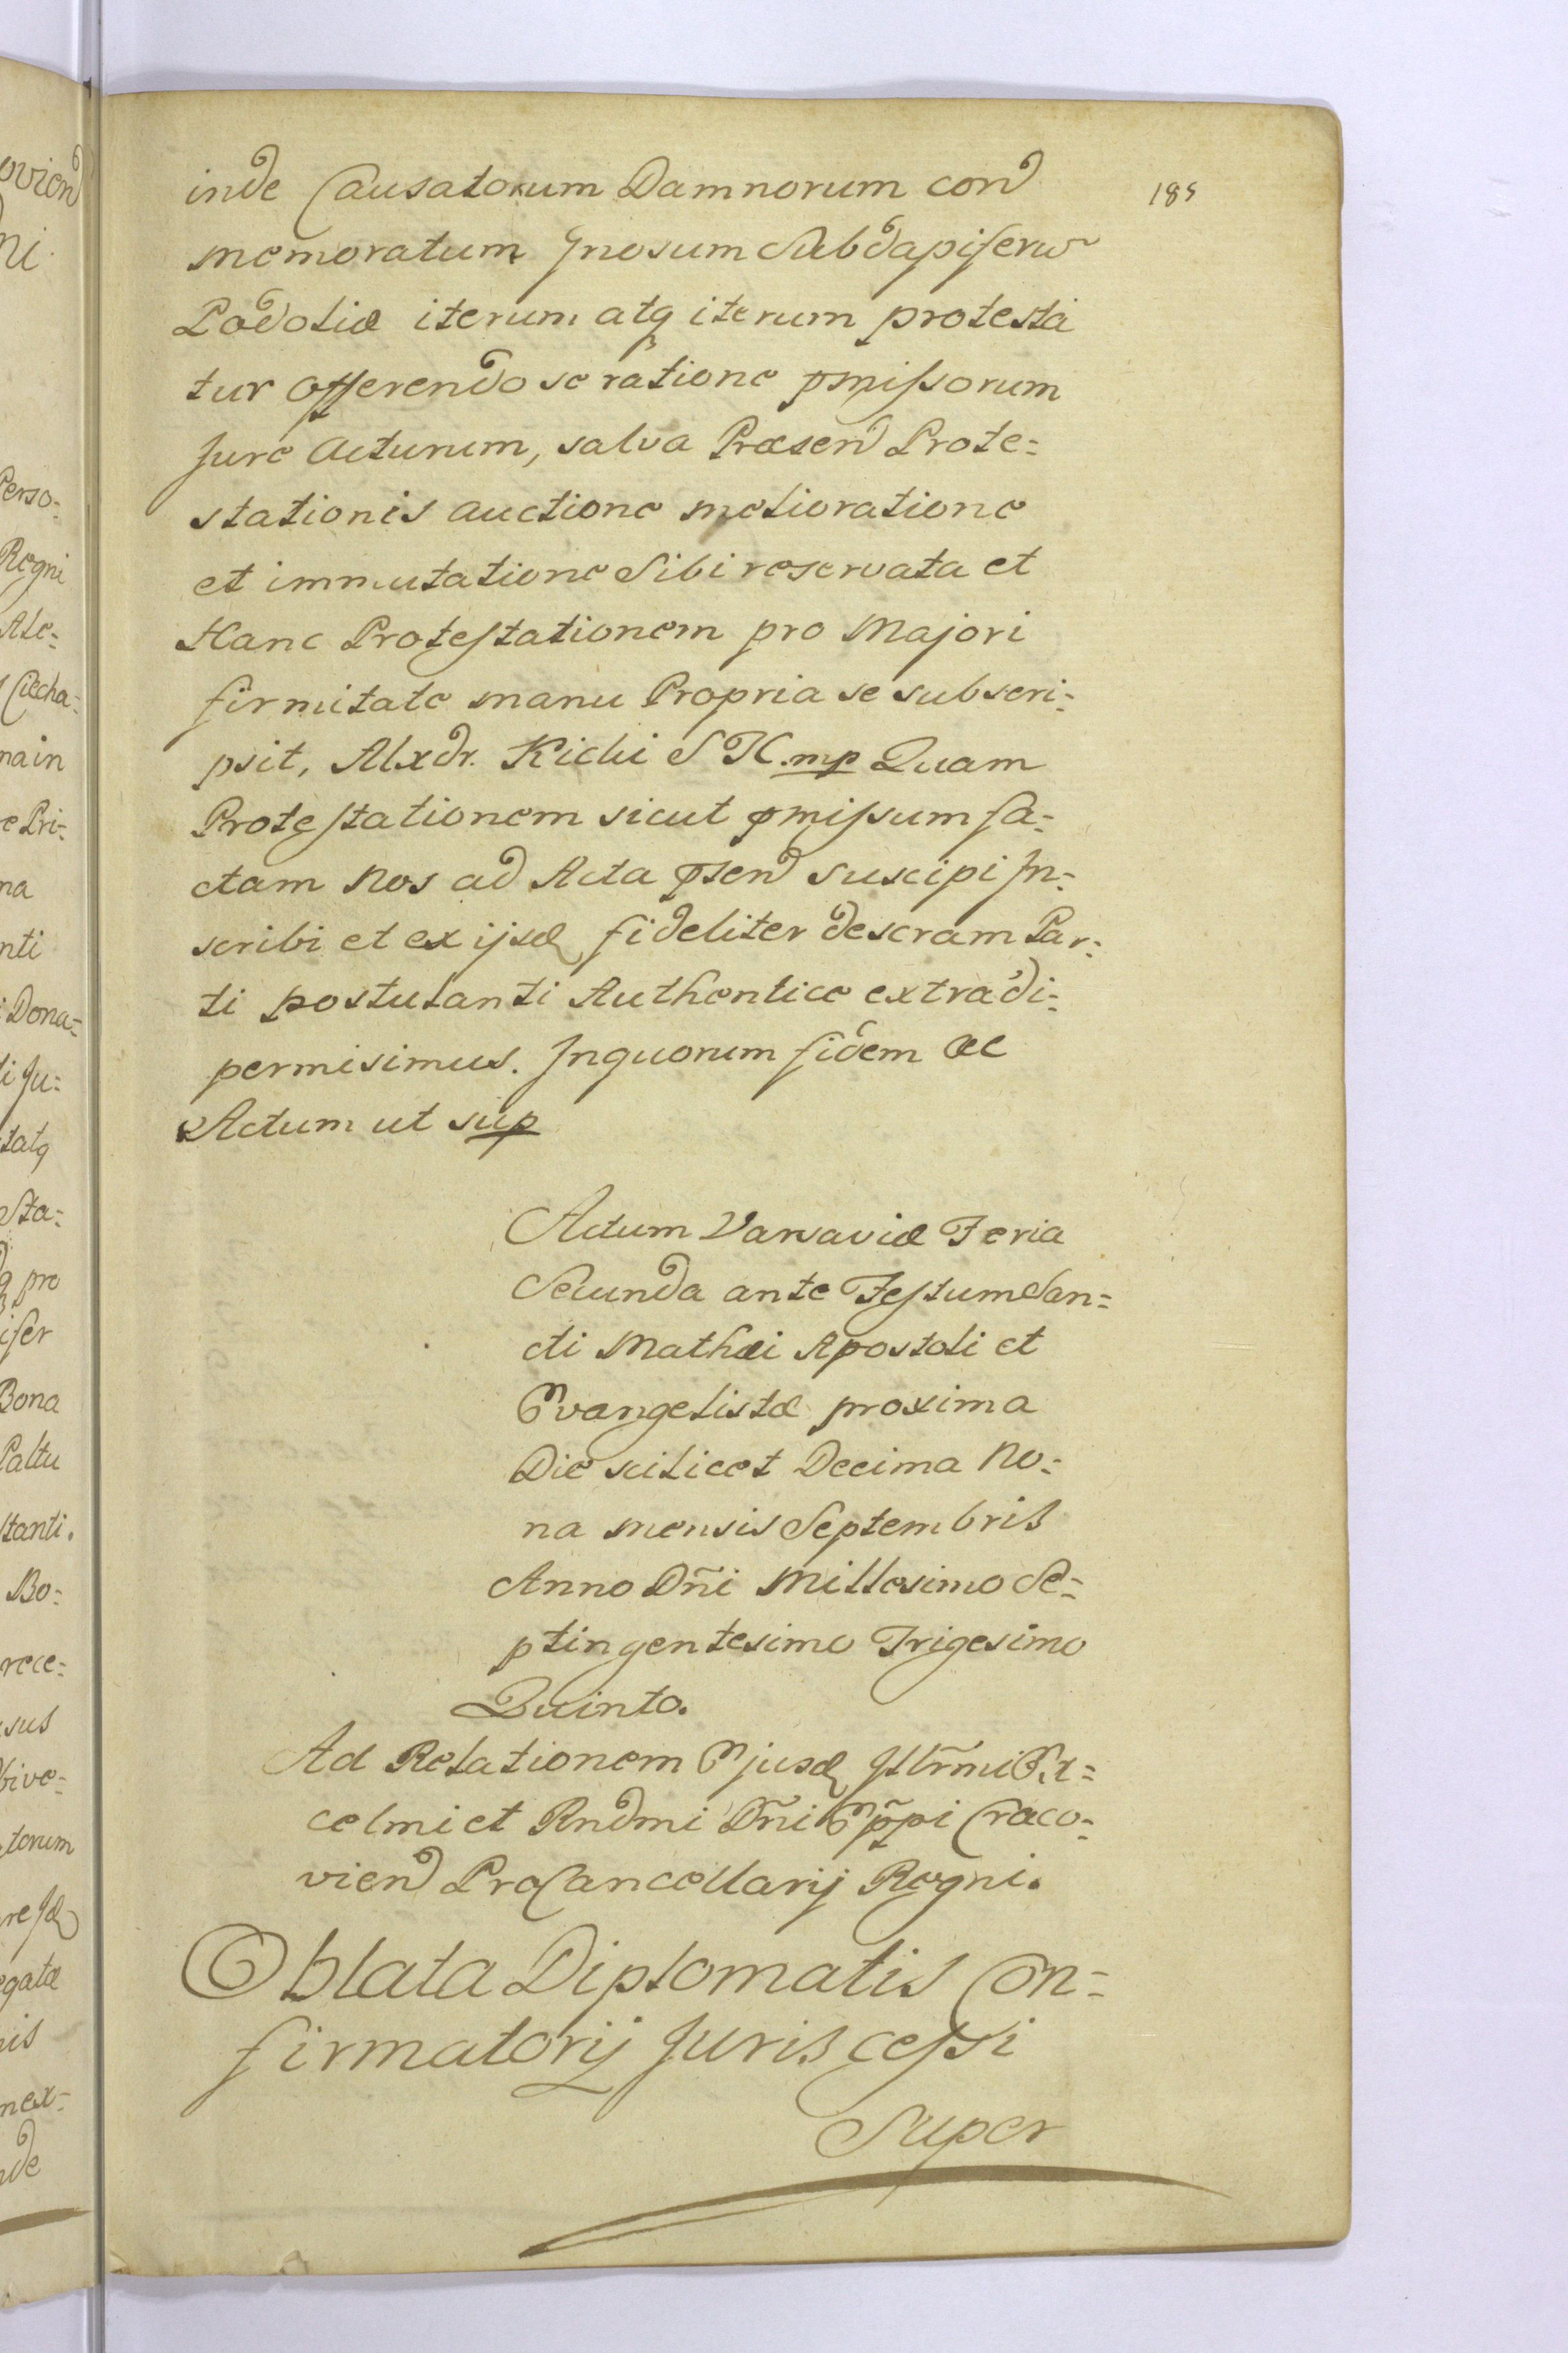 185
inde Causatorum Damnorum cond
memoratum Gnosum Subdapiferu
Podoliæ iterum atq iterum protesta
tur offerendo se ratione pmissorum
Jure Acturum, salva Præsend Prote=
stationis auctione melioratione
et immutatione Sibi reservata et
Hanc Protestationem pro Majori
firmitate manu Propria se subscri=
psit, Alxdr. Kicki S K mp Quam
Protestationem sicut pmissum fa=
ctam Nos ad Acta psend suscipi In=
scribi et ex ijsd fideliter descram Par=
ti postulanti Authentice extradi=
permisimus. In quorum fidem &c
Actum ut sup
Actum Varsaviæ Feria
Secunda ante Festum San=
cti Mathæi Apostoli et
Evangelistæ proxima
Die scilicet Decima No=
na mensis Septembris
Anno Dñi Millesimo Se=
ptingentesimo Trigesimo
Quinto.
Ad Relationem Ejusd Illr̃mi Ex=
celmi et Rndmi Dñi Ep̃pi Craco=
viend ProCancellarij Regni.
Oblata Diplomatis Con=
firmatorij Juris cessi
Super
oviend
ni.
Perso=
Regni
Ale=
Ciecha=
main
e Pri=
na
nti
Dona=
ti Ju=
tatq
Sta=
q pro
ifer
Bona
Paltu
stanti.
Bo=
rece=
sus
bive=
torum
re Jd
egatæ
nis
nex=
nde